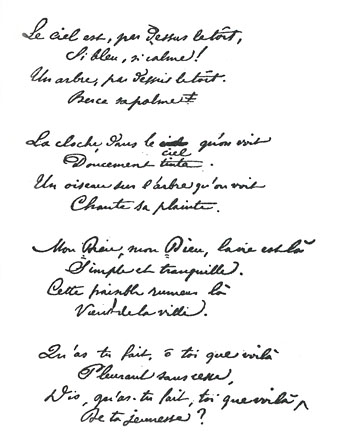 Le ciel est, par dessus le toit,
Si bleu, si calme!
Un arbre, par dessus le toit.
Berce sa palme
La cloche dans le ciel qu'on voit
Doucement tinte.
Un oiseau sur l'arbre qu'on voit
Chante sa plainte.
Mon Dieu, mon Dieu, la vie est là
Simple et tranquille.
Cette paisible rumeur là
Vient de la ville.
Qu'as tu fait, ô toi que voilà
Pleurant sans cesse,
Dis, qu'as-tu fait, toi que voilà,
De ta jeunesse?